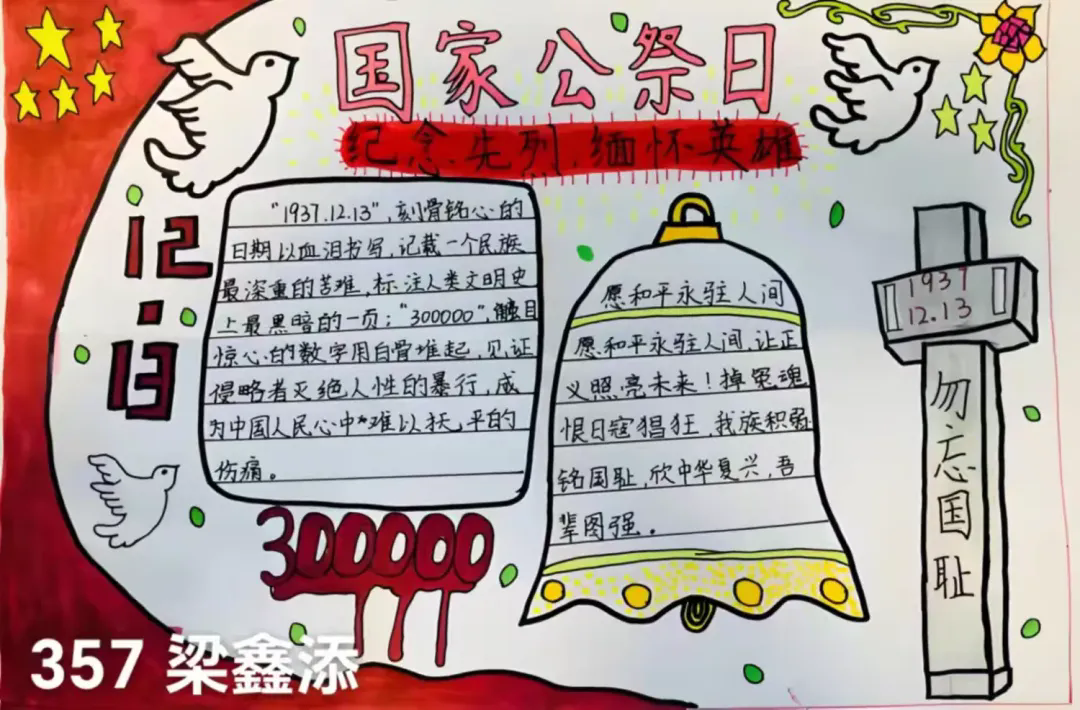 国家公祭日
纪念先列,缅怀英雄
12
·
13
"1937.12.13",刻骨铭心的
日期以血泪书写,记载一个民族
最深重的苦难,标注人类文明史
上最黑暗的一页;"300000",触目
惊心的数字用白骨堆起,见证
侵略者灭绝人性的暴行,成
为中国人民心中难以抚平的
伤痛。
300000
愿和平永驻人间
愿和平永驻人间,让正
义照亮未来!掉冤魂
恨日寇猖狂,我族积弱
铭国耻,欣中华复兴,吾
辈图强。
1937
12.13
勿忘国耻
357 梁鑫添